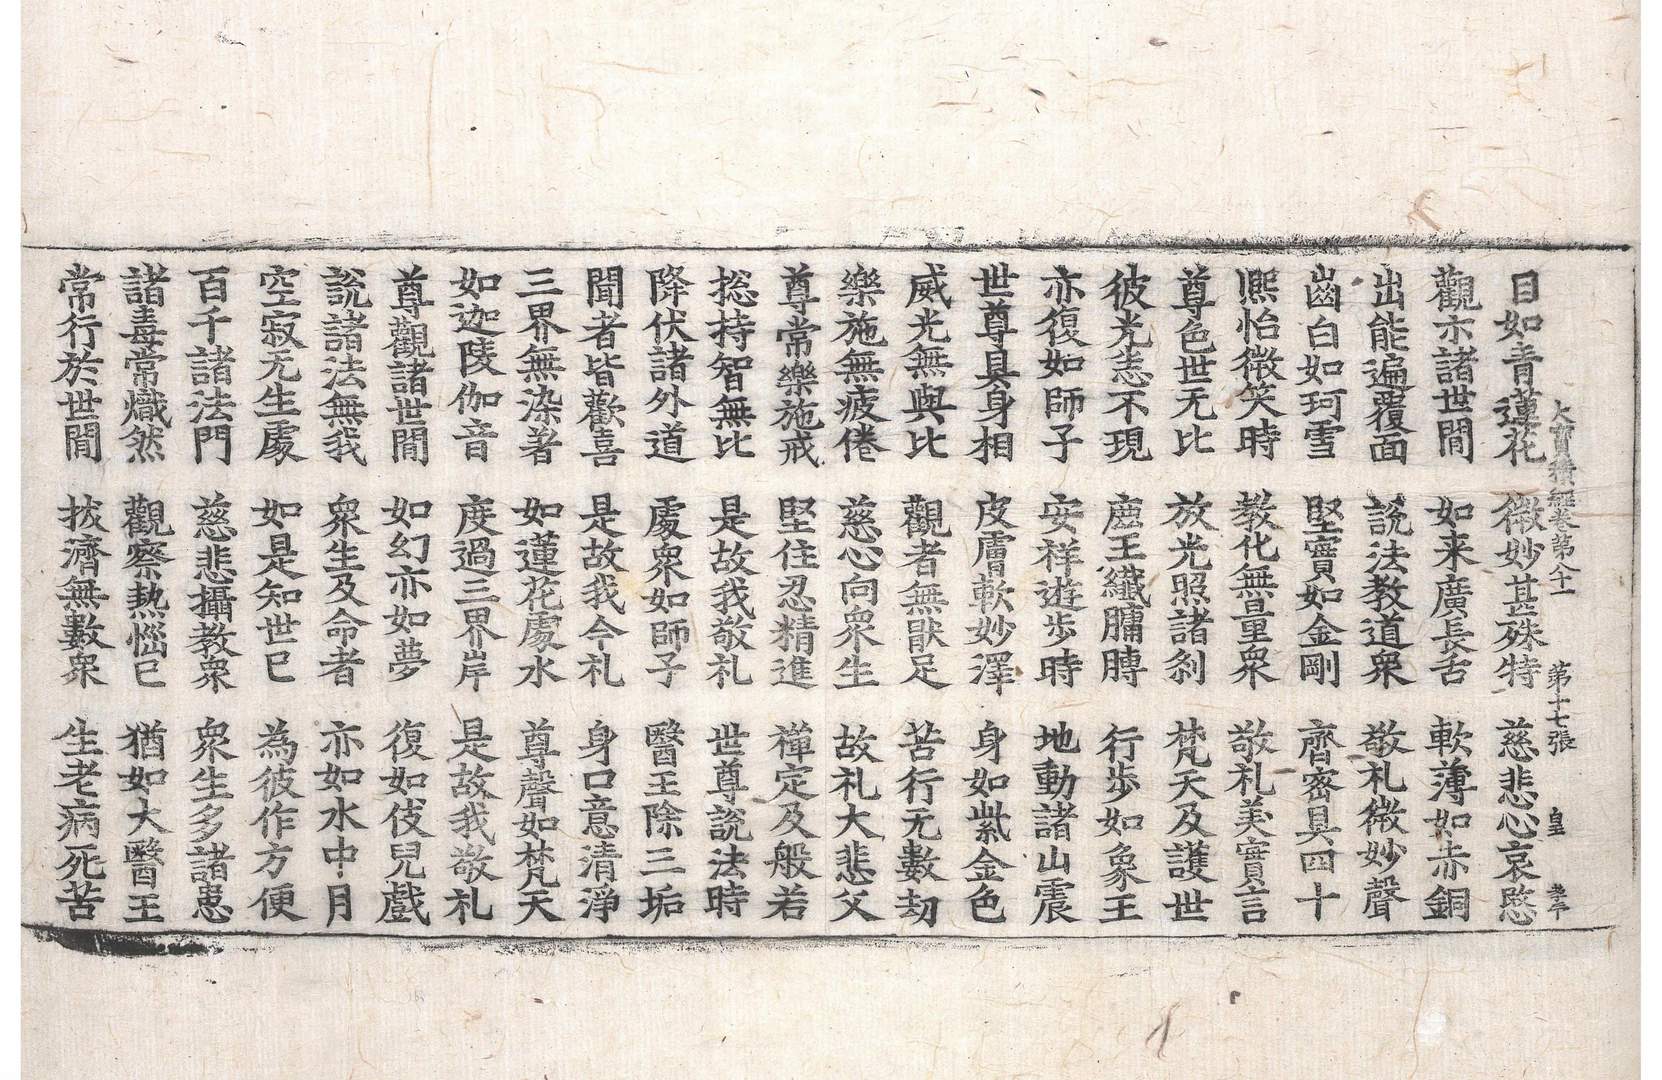 大寶積經卷第八十一 第十七張 皇
目如青蓮花 微妙甚殊特 慈悲心哀愍
觀亦諸世間 如来廣長舌 軟薄如赤銅
出能遍覆面 說法教道衆 敬礼微妙聲
齒白如珂雪 堅實如金剛 齊密具四十
熈怡微笑時 教化無量衆 敬礼美實言
尊色世无比 放光照諸剎 梵天及護世
彼光恚不現 鹿王纖𦟛膞 行步如象王
亦復如師子 安祥遊步時 地動諸山震
世尊具身相 皮膚軟妙澤 身如紫金色
威光無與比 觀者無猒足 苦行无數劫
樂施無疲倦 慈心向衆生 故礼大悲父
尊常樂施戒 堅住忍精進 禪定及般若
捴持智無比 是故我敬礼 世尊說法時
降伏諸外道 處衆如師子 醫王除三垢
聞者皆歡喜 是故我今礼 身口意清淨
三界無染著 如蓮花處水 尊聲如梵天
如迦陵伽音 度過三界岸 是故我敬礼
尊觀諸世間 如幻亦如夢 復如伎兒戲
說諸法無我 衆生及命者 亦如水中月
空寂无生處 如是知世已 為彼作方便
百千諸法門 慈悲攝教衆 衆生多諸患
諸毒常熾然 觀察熱惱已 猶如大醫王
常行於世間 拔濟無數衆 生老病死苦